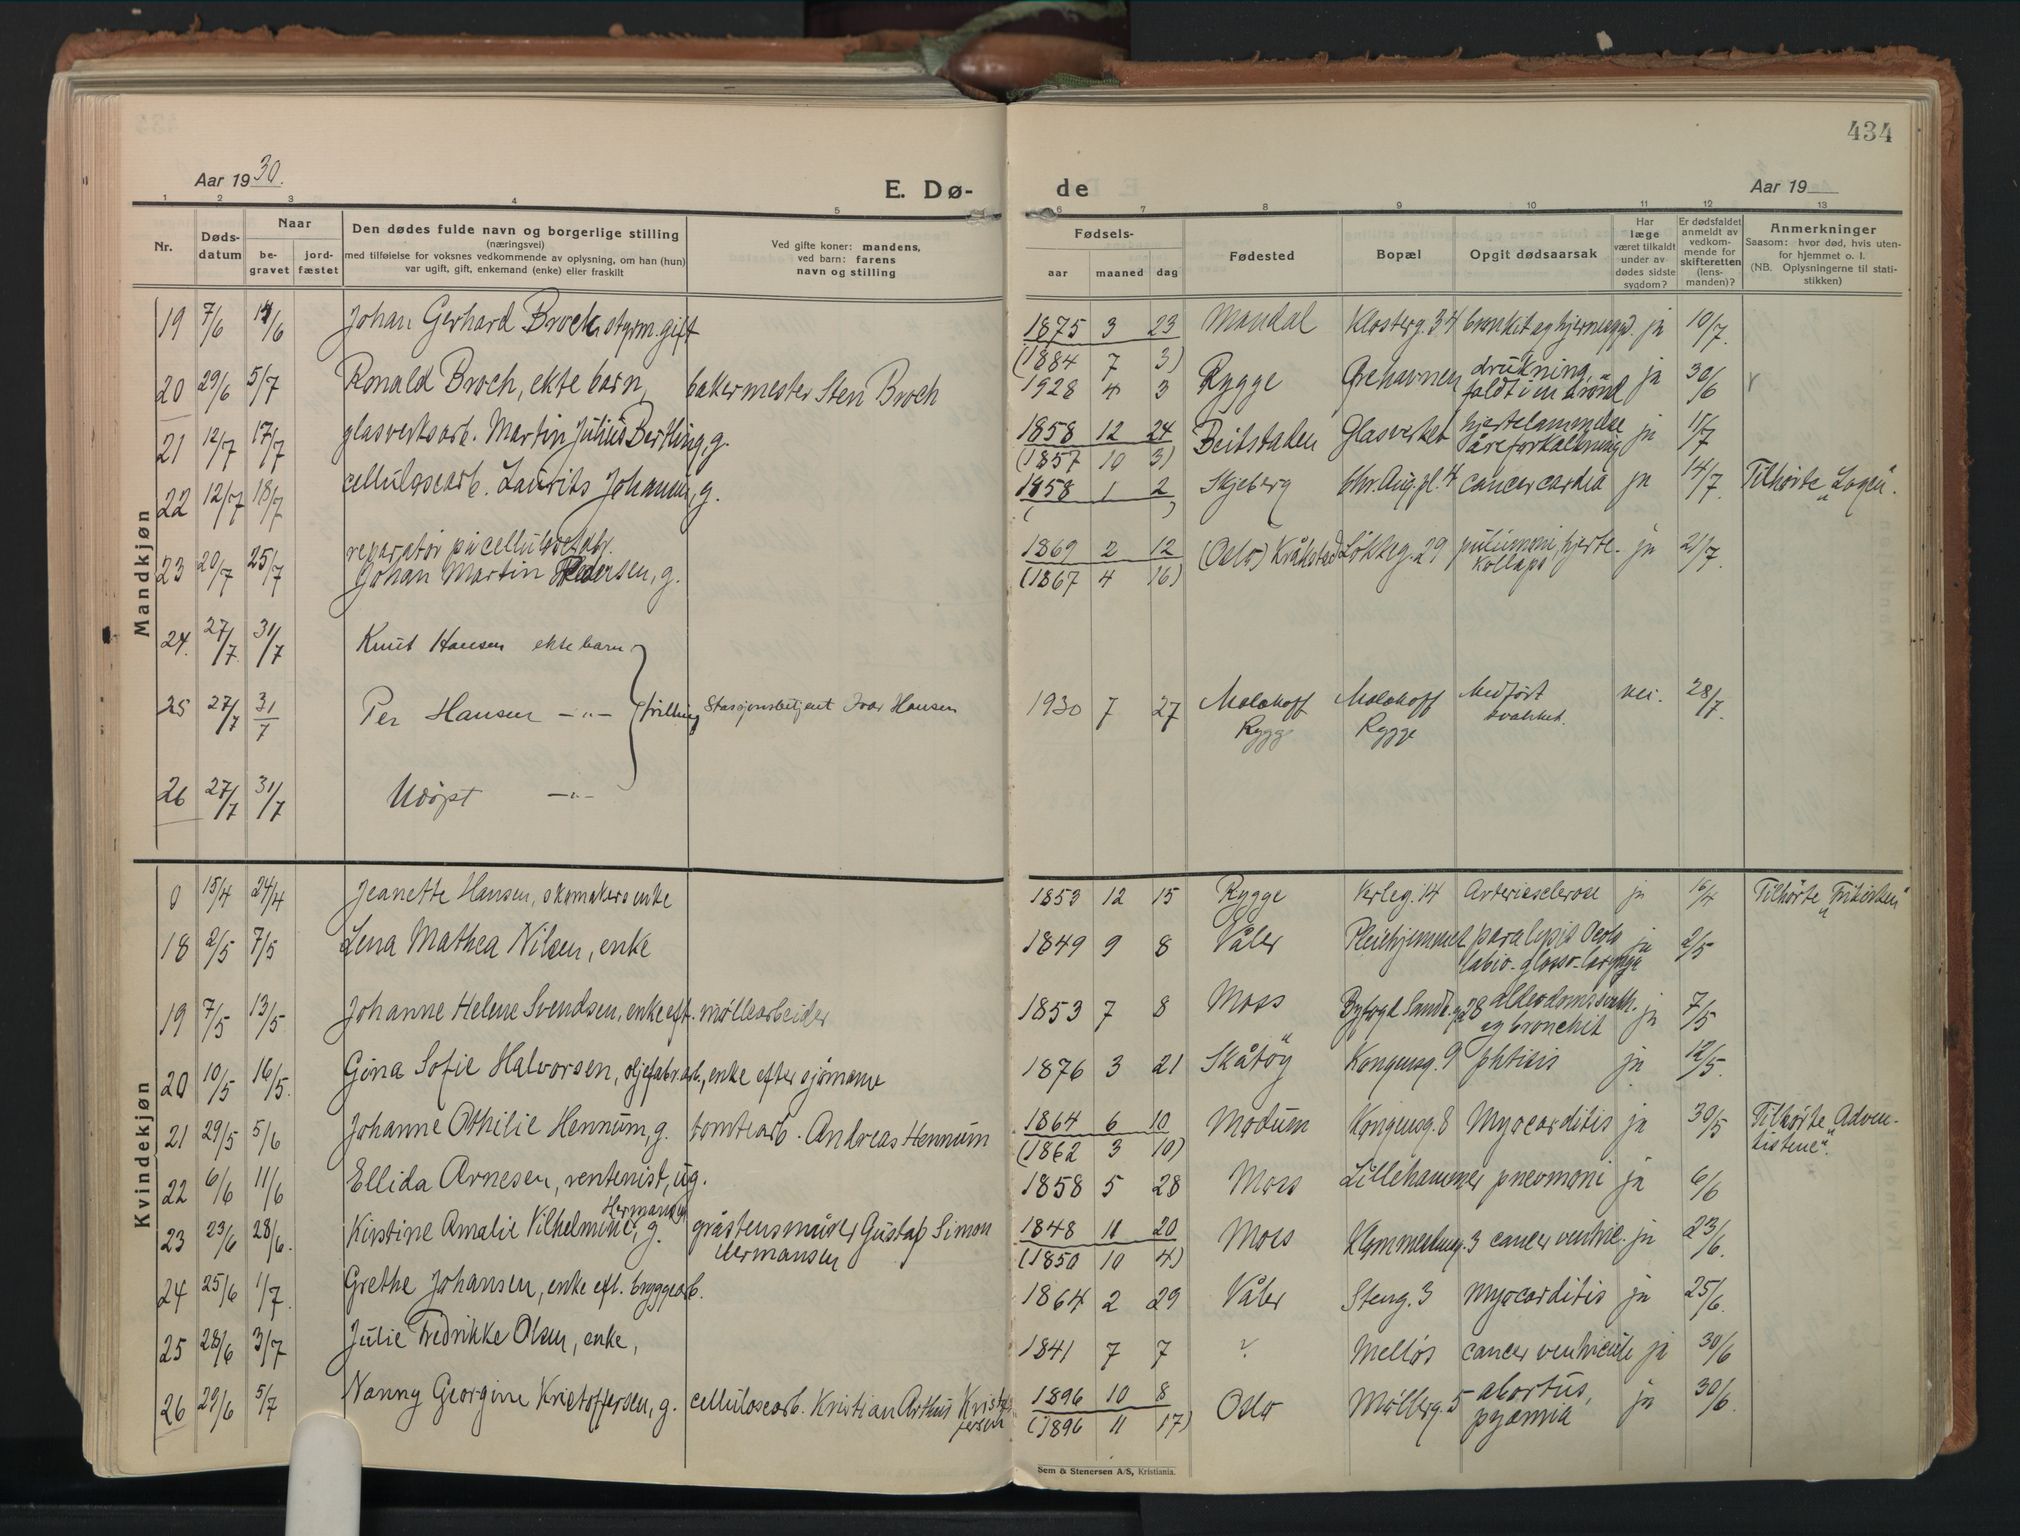 434
Aar 1930.
E. Dø-
de
Aar 19
1 2 3 4 5 6 7 8 9 10 11 12 13
Nr.
Døds-
datum
Naar
be-
gravet
jord-
fæstet
Den dødes fulde navn og borgerlige stilling
(næringsvei)
med tilføielse for voksnes vedkommende av oplysning, om han (hun)
var ugift, gift, enkemand (enke) eller fraskilt
Ved gifte koner: mandens,
ved barn: farens
navn og stilling
Fødsels-
aar maaned dag
Fødested
Bopæl
Opgit dødsaarsak
Har
læge
været tilkaldt
under av
dødes sidste
sygdom?
Er dødsfaldet
anmeldt av
vedkom-
mende for
skifteretten
(lens-
manden)?
Anmerkninger
Saasom: hvor død, hvis uten-
for hjemmet o. l.
(NB. Oplysningerne til stati-
stikken)
Mandkjøn
19 7/6 /6 Johan Gerhard Broch, styrm. gift 1875 3 23 Mandal Klosterg. 34 ja 10/7.
(1884 7 3)
20 29/6 5/7 Ronald Broch, ekte barn, bakermester Sten Broch 1928 4 3 Rygge Orehavnen drukning, ja 30/6
faldt i en brønd
21 12/7 17/7 glasverksarb. Martin Julius Bertling, g. 1858 12 24 Beitstaden Glasverket hjertelammelse ja 15/7
(1857 10 3) åreforkalkning
22 12/7 18/7 cellulosearb. Laurits Johansen, g. 1858 1 2 Skjeberg Chr. Aug. pl. 4 cancer cardia ja 14/7. Tilhørte "Logen".
( )
23 20/7 25/7 reparatør på cellulosefabr. 1869 2 12 (Oslo) Kråkstad Løkkeg. 29 hjerte- ja 21/7.
Johan Martin Pedersen, g. (1867 4 16) kollaps
24. 27/7. 31/7 Knut Hansen ekte barn
25 27/7 31/7 Per Hansen -"- trilling Stasjonsbetjent Ivar Hansen 1930 7 27 Malakoff Malakoff Medført nei. 28/7.
Rygge Rygge svakhet.
26 27/7 31/7 Udøpt -"-
Kvindekjøn
0 15/4 24/4 Jeanette Hansen, skomakers enke 1853 12 15 Rygge Kirkeg. 14 Arteriesclerose ja 16/4 Tilhørte "Frikirken"
18 2/5 7/5 Lena Mathea Nilsen, enke 1849 9 8 Våler Pleiehjemmet ja 2/5
labio-glosso-
19 7/5 13/5 Johanne Helene Svendsen, enke eft. møllearbeider 1853 7 8 Moss 28 alderdomssvakh. ja 7/5
og bronchit
20 10/5 16/5. Gina Sofie Halvorsen, oljefabr.arb., enke efter sjømann 1876 3 21 Skåtøy Kongensg. 9 phtisis ja 12/5.
21 29/5 5/6 Johanne Othilie Hennum, g. tomtearb. Andreas Hennum 1864 6 10 Moduen Kongensg. 8 Myocarditis ja 30/5 Tilhørte "Adven-
(1862 3 10) tistene".
22 6/6 11/6 Ellida Arnesen, rentenist, ug. 1858 5 28 Moss Lillehammer pneomoni ja 6/6
Hermansen
23 23/6 28/6. Kirstine Amalie Vilhelmine, g. gråstensmurer Gustaf Simon 1848 11 20 Moss 3 cancer ventric. ja 23/6.
Hermansen (1850 10 4)
24 25/6 1/7. Grethe Johansen, enke eft. bryggearb. 1864 2 29 Våler Steng. 3 Myocarditis ja 25/6.
25 28/6 3/7 Julie Fredrikke Olsen, enke, 1841 7 7 ? Melløs cancer ventricule ja 30/6
26 29/6 5/7 Nanny Georgine Kristoffersen, g. cellulosearb. Kristian Arthur Kristof- 1896 10 8 Oslo Møllerg. 5 abortus, ja 30/6.
fersen (1896 11 17) pyæmia
Sem & Stenersen A/S, Kristiania.